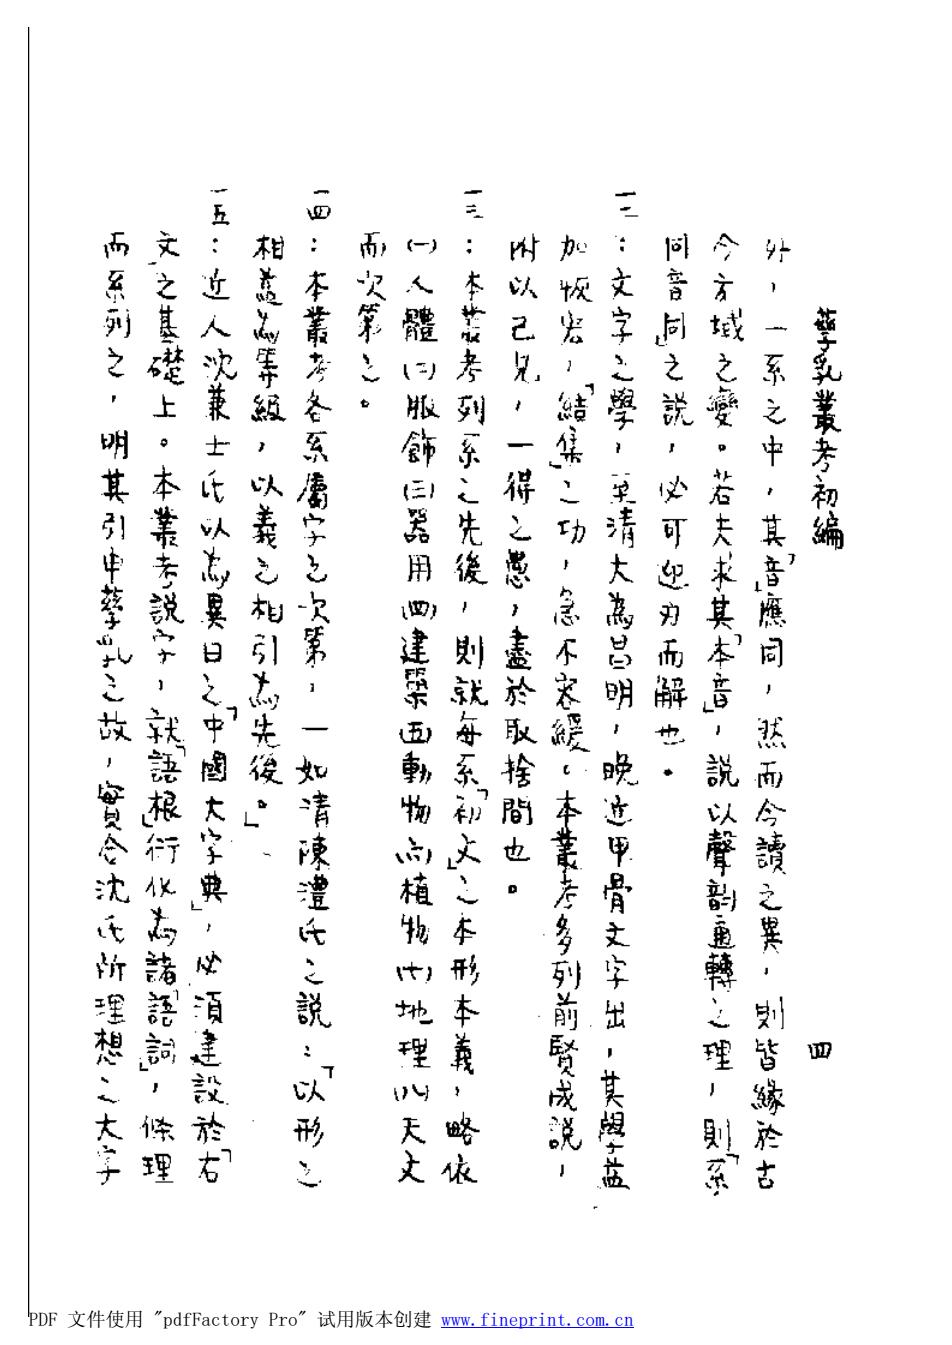 孳乳叢考初編　四
外，一系之中，其「音」應同，然而今讀之異，則皆緣於古
今方域之變。若夫求其「本音」，說以聲韵通轉之理，則「系
同音同」之說，必可迎刃而解也。
一二：文字之學，至清大為昌明，晚近甲骨文字出，其學益
加恢宏，「結集」之功，急不容緩。本叢考多列前賢成說，
附以己見，一得之愚，盡於取捨間也。
一三：本叢考列系之先後，則就每系「初文」之本形本義，略依
(一)人體(二)服飾(三)器用(四)建築(五)動物(六)植物(七)地理(八)天文
而次第之。
一四：本叢考各系屬字之次第，一如清陳澧氏之說：「以形之
相益為等級，以義之相引為先後。」
一五：近人沈兼士氏以為異日之「中國大字典」，必須建設於「右
文」之基礎上。本叢考說字，就「語根」衍化為諸「語詞」，條理
而系列之，明其引申孳乳之故，實合沈氏所理想之大字
PDF 文件使用 "pdfFactory Pro" 试用版本创建 www.fineprint.com.cn